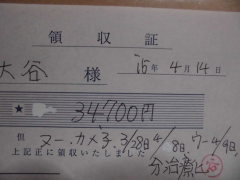 領収証
大谷 様 15年 4月 14日
★ 34700円
但 ヌー.カメ子. 3/28日 4/8日, ウー 4/9日,
上記正に領収いたしました 分治療代